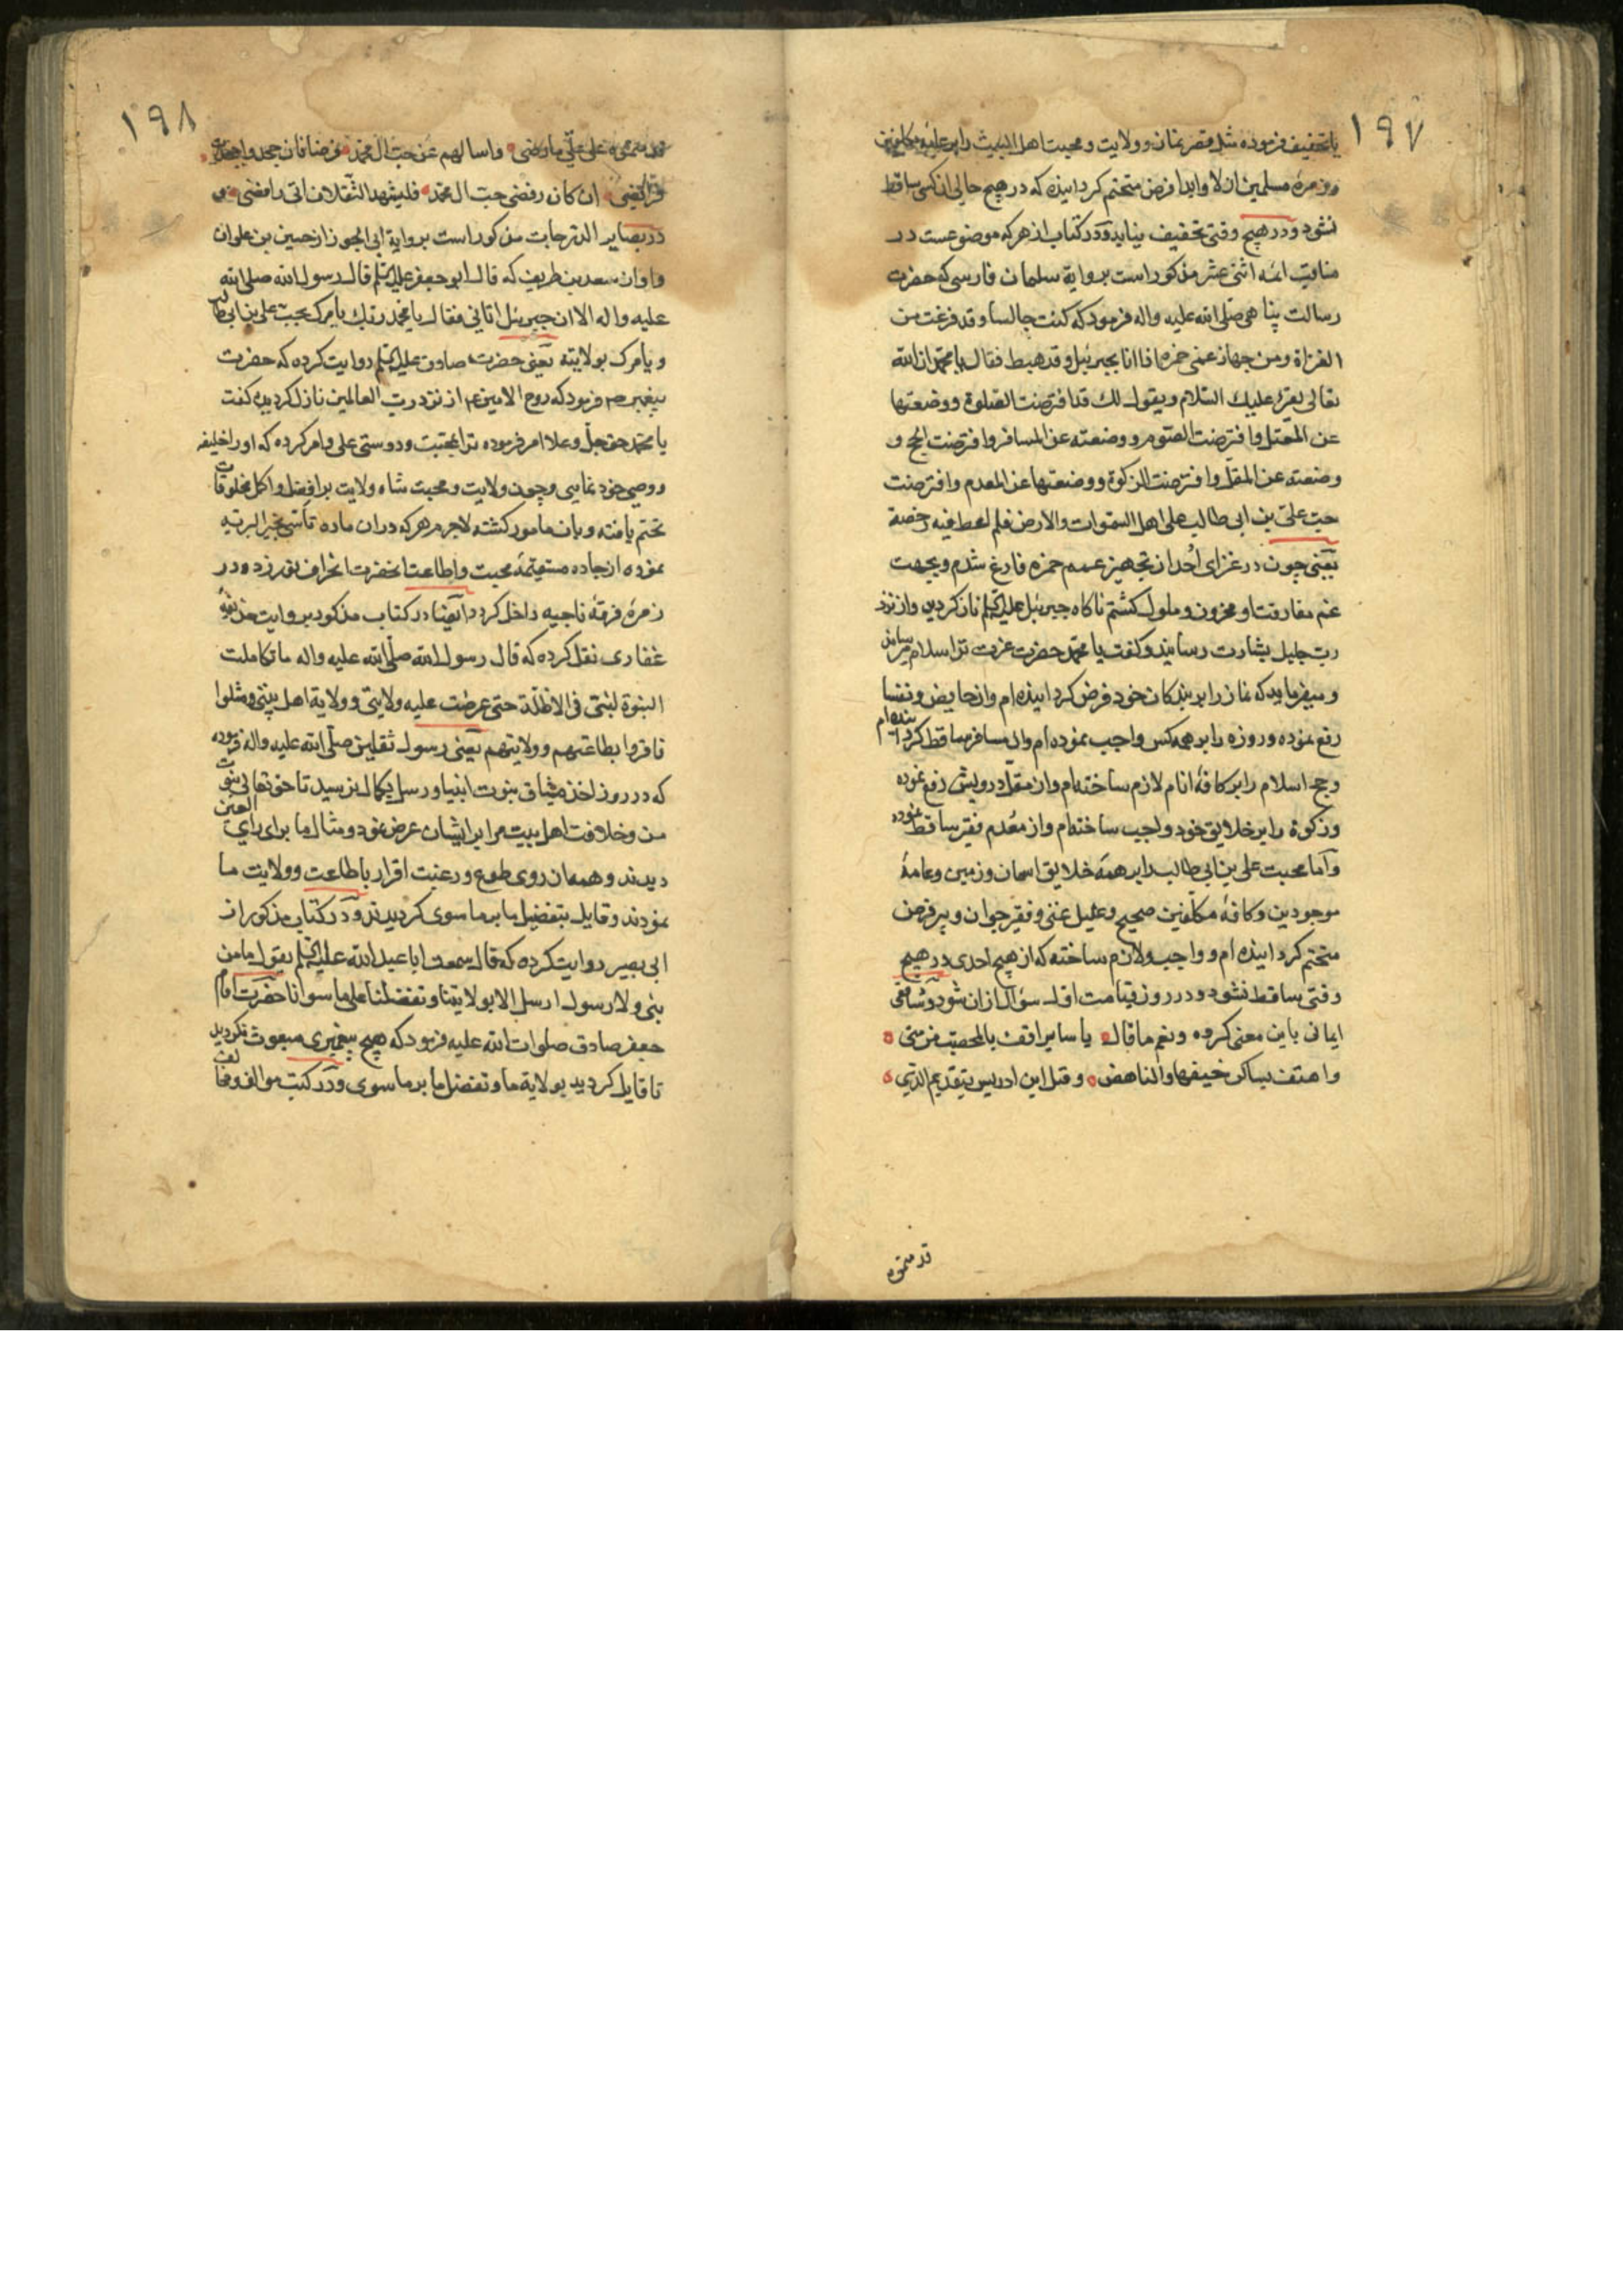 ۱۹۷
یا تخفیف فرموده مثل قصر نماز و ولایت و محبت اهل البیت را بر عامه مکلفین
وزمرهٔ مسلمین ازلا وابدا فرض متحتم کردانیده که در هیچ حالی از کسی ساقط
نشود و در هیچ وقتی تخفیف نیابد و در کتاب ازهر که موضوعست در
مناقب ائمه اثنی عشر مذکور است بروایة سلمان فارسی که حضرت
رسالت پناهی صلی الله علیه واله فرمود که کنت جالسا وقد فرغت من
الغزاة ومن جهاز عمی حمزه فاذا انا بجبرئیل وقد هبط فقال یا محمد ان الله
تعالی یقرئ علیك السّلام ویقول لك قد افترضت الصّلوة ووضعتها
عن المعتل وافترضت الصّوم ووضعته عن المسافر وافترضت الحج و
وضعته عن المقل وافترضت الزکوة ووضعتها عن المعدم وافترضت
حبّ علیّ بن ابی طالب علی اهل السّموات والارض فلم اعط فیه رخصة
یعنی چون در غزای اُحد از تجهیز عمم حمزه فارغ شدم وبجهت
غم مفارقت او محزون وملول کشتم ناکاه جبرئیل علیه السّلم نازل کردید واز نزد
رب جلیل بشارت رسانید وکفت یا محمّد حضرت عزت ترا سلام میرساند
ومیفرماید که نماز را بر بندکان خود فرض کردانیده ام واز حایض ونفسا
رفع نموده وروزه را بر همه کس واجب نموده ام واز مسافر ساقط کردانیده ام
وحج اسلام را بر کافهٔ انام لازم ساخته ام واز مقل درویش رفع نموده
وزکوة را بر خلایق خود واجب ساخته ام واز معدم فقیر ساقط نموده
وامّا محبت علی بن ابی طالب را بر همهٔ خلایق اسمان وزمین وعامهٔ
موجودین وکافهٔ مکلفین صحیح وعلیل غنی وفقیر جوان وپیر فرض
متحتم کردانیده ام و واجب ولازم ساخته که از هیچ احدی در هیچ
وقتی ساقط نشود و در روز قیامت اول سؤال ازان شود و شافعی
ایمائی باین معنی کرده ونعم ما قال یا سایرا قف بالمحصّب من منی
واهتف بساکن خیفها والناهض وقل ابن ادریس بتقدیم الّذی
قدمتموه
۱۹۸
قدمتموه علی علیّ ما رضی واسالهم عن حبّ ال محمّد
فرایضی ان کان رفضی حبّ ال محمّد فلیشهد الثّقلان انّی رافضی و
در بصایر الدّرجات مذکور است بروایة ابی الجوزا از حسین بن علوان
واو از سعد بن طریف که قال ابو جعفر علیه السّلم قال رسول الله صلی الله
علیه واله الا ان جبرئیل اتانی فقال یا محمد ربّك یامرك بحبّ علی بن ابی طالب
ویامرك بولایته یعنی حضرت صادق علیه السّلم روایت کرده که حضرت
پیغمبر ص فرمود که روح الامین ع از نزد رب العالمین نازل کردیده کفت
یا محمّد حق جلّ وعلا امر فرموده ترا بمحبت ودوستی علی وامر کرده که او را خلیفه
ووصی خود نمایی وچون ولایت ومحبت شاه ولایت بر افضل واکمل مخلوقات
تحتم یافته وبان مامور کشته لاجرم هر که دران ماده تأسّی بخیر البریّه
نموده از جاده مستقیمهٔ محبت واطاعت انحضرت انحراف نورزد ودر
زمرهٔ فرقهٔ ناجیه داخل کردد ایضا در کتاب مذکور بروایت حذیفهٔ
غفاری نقل کرده که قال رسول الله صلّی الله علیه واله ما تکاملت
النبوّة لنبیّ فی الاظلّة حتی عرضت علیه ولایتی وولایة اهل بیتی ومثلوا
فاقروا بطاعتهم وولایتهم یعنی رسول ثقلین صلّی الله علیه واله فرموده
که در روز اخذ میثاق نبوت انبیا ورسل بکمال نرسید تا حق تعالی نبوت
من وخلافت اهل بیت مرا بر ایشان عرض نمود ومثال ما برای رأی العین
دیدند وهمه از روی طوع ورغبت اقرار باطاعت وولایت ما
نمودند وقایل بتفضیل ما بر ما سوی کردیدند و در کتاب مذکور از
ابی بصیر روایت کرده که قال سمعت ابا عبد الله علیه السّلم یقول ما من
نبی ولا رسول ارسل الا بولایتنا وتفضلنا علی ما سوانا حضرت امام
جعفر صادق صلوات الله علیه فرمود که هیچ پیغمبری مبعوث نکردید
تا قایل کردید بولایة ما وتفضل ما بر ما سوی و در کتب موالف ومخالف